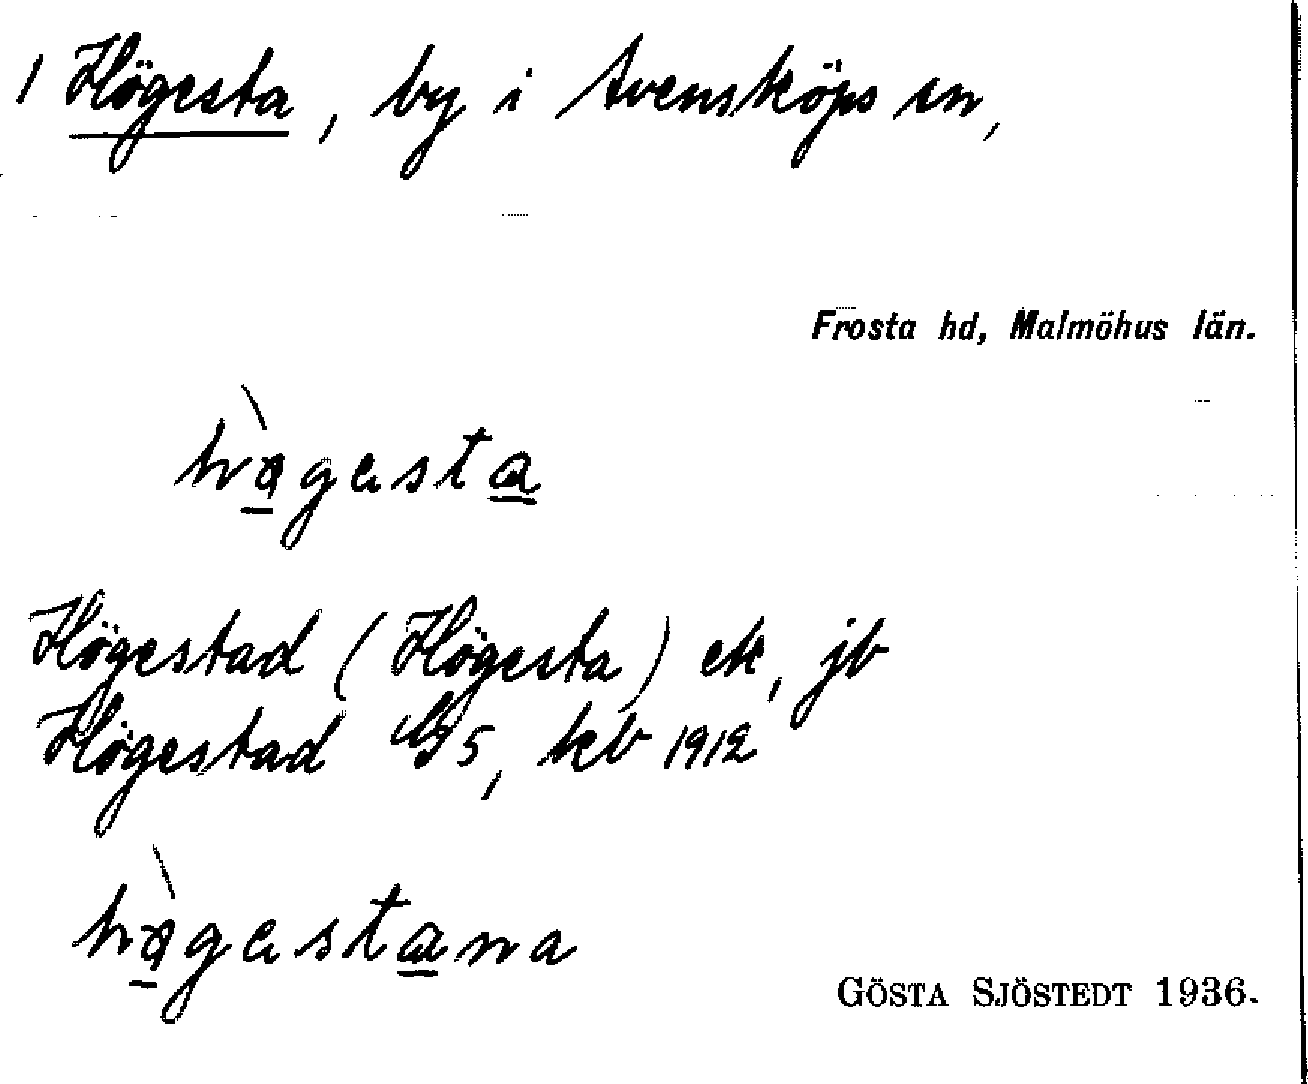 1 Högesta, by i Svensköps sn,
Frosta hd, Malmöhus län.
hàgesta
Högestad (Högesta) ek, jb
Högestad GG5, kb 1912
hàgestana
GÖSTA SJÖSTEDT 1936.